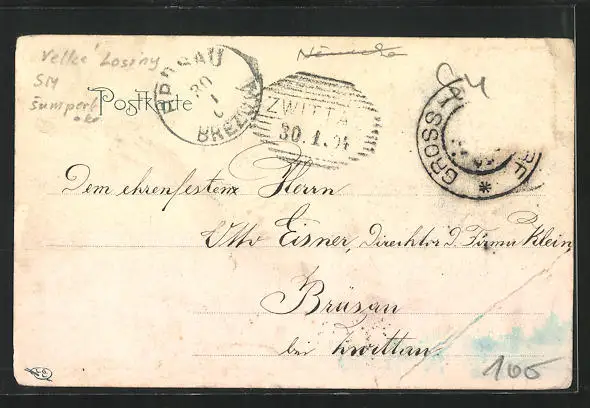 Velké Losiny
SM
Šumperk
Postkarte
BRÜSAU
30
1
BREZOVA
ZWITTA
30.1.04
GROSS
RF
*
Dem ehrenfesten Herrn
Otto Eisner, Direcktor d. Firma Klein,
Brüsau
bei Zwittau.
100